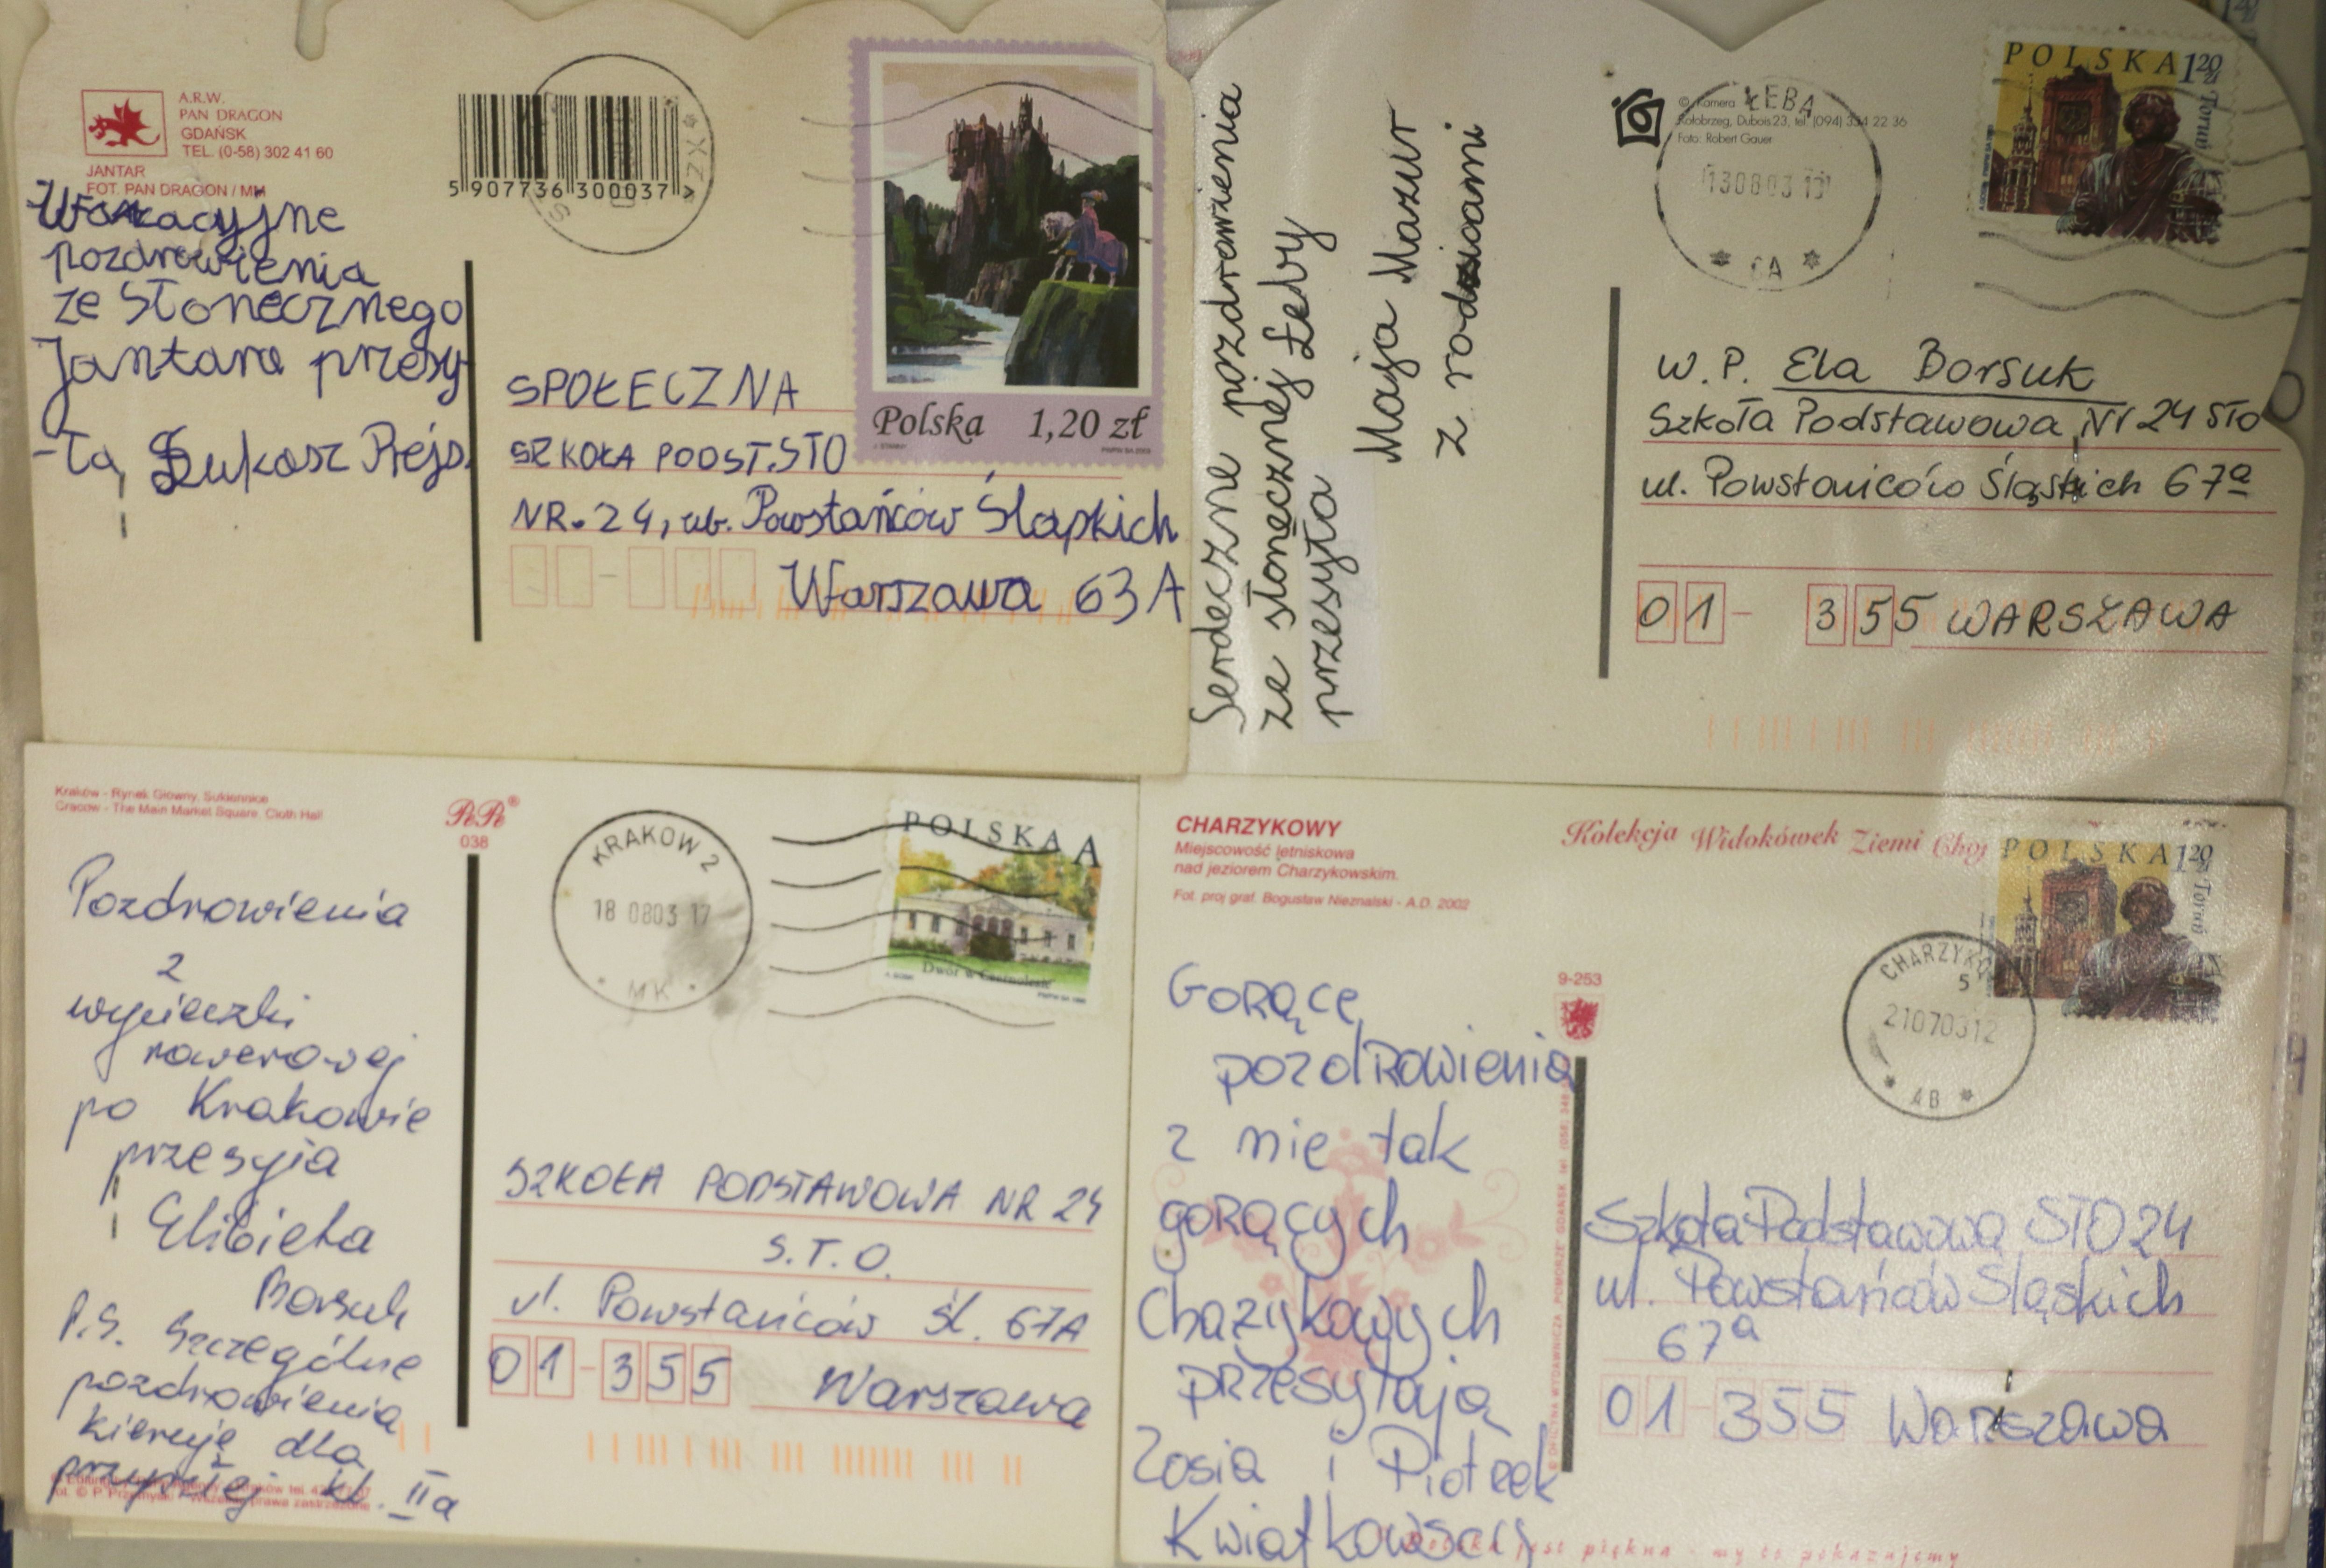 A.R.W.
PAN DRAGON
GDAŃSK
TEL. (0-58) 302 41 60
JANTAR
FOT. PAN DRAGON / MM
5 907736 300037 >
Wakacyjne
pozdrowienia
ze Słonecznego
Jantara przesy
-ła, Łukasz Rejs.
Polska 1,20 zł
SPOŁECZNA
SZKOŁA PODST. STO
NR. 24, ul. Powstańców Śląskich
Warszawa 63 A
Serdeczne pozdrowienia
ze słonecznej Łeby
przesyła
Maja Mazur
z rodzicami
© Kamera
Kołobrzeg, Dubois 23, tel. (094) 354 22 36
Foto: Robert Gauer
ŁEBA
130803 13
CA
POLSKA 120 zł
Toruń
W. P. Ela Borsuk
Szkoła Podstawowa Nr 24 STO
ul. Powstańców Śląskich 67a
01-355 WARSZAWA
Kraków - Rynek Główny, Sukiennice
Cracow - The Main Market Square, Cloth Hall
PePe®
038
KRAKOW 2
18 0803 17
MK
POLSKA A
Dwór w Czarnolesie
Pozdrowienia
z
wycieczki
rowerowej
po Krakowie
przesyła
Elżbieta
Borsuk
P.S. Szczególne
pozdrowienia
kieruję dla
przyszłej kl. IIa
SZKOŁA PODSTAWOWA NR 24
S.T.O.
ul. Powstańców Śl. 67A
01-355 Warszawa
CHARZYKOWY
Miejscowość letniskowa
nad jeziorem Charzykowskim.
Fot. proj graf. Bogusław Nieznalski - A.D. 2002
Kolekcja Widokówek Ziemi Choj
POLSKA 120 zł
Toruń
CHARZYKO
5
21070312
AB
9-253
Gorące
pozdrowienia
z nie tak
gorących
Chażykowych
przesyłają
Zosia i Piotrek
Kwiatkowscy
Szkoła Podstawowa STO 24
ul. Powstańców Śląskich
67a
01-355 Warszawa
Polska jest piękna - my to pokazujemy